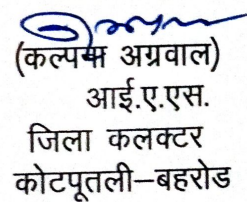 (कल्पना अग्रवाल)
आई.ए.एस.
जिला कलक्टर
कोटपूतली–बहरोड